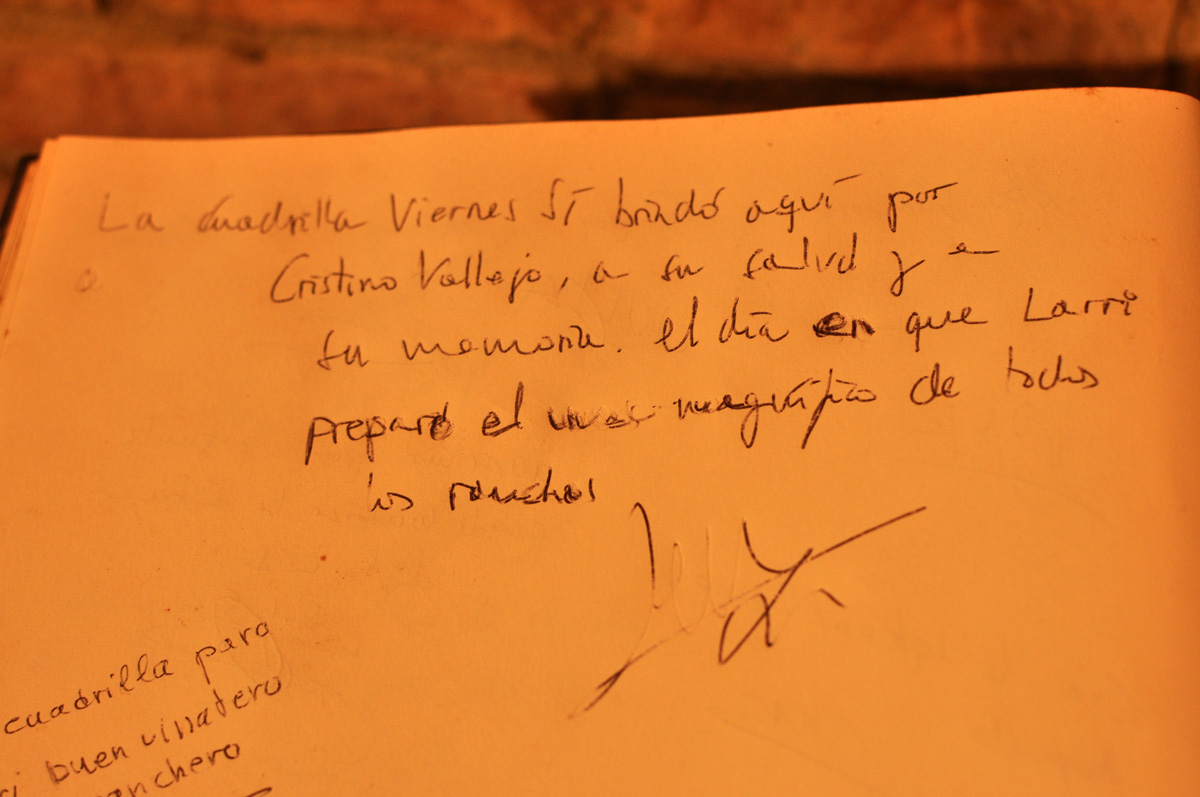 La cuadrilla Viernes SÍ brindó aquí por
Cristino Vallejo, a su salud y a
su memoria. El día en que Larri
preparó el magnífico de todos
los ranchos
cuadrilla para
buen
ranchero